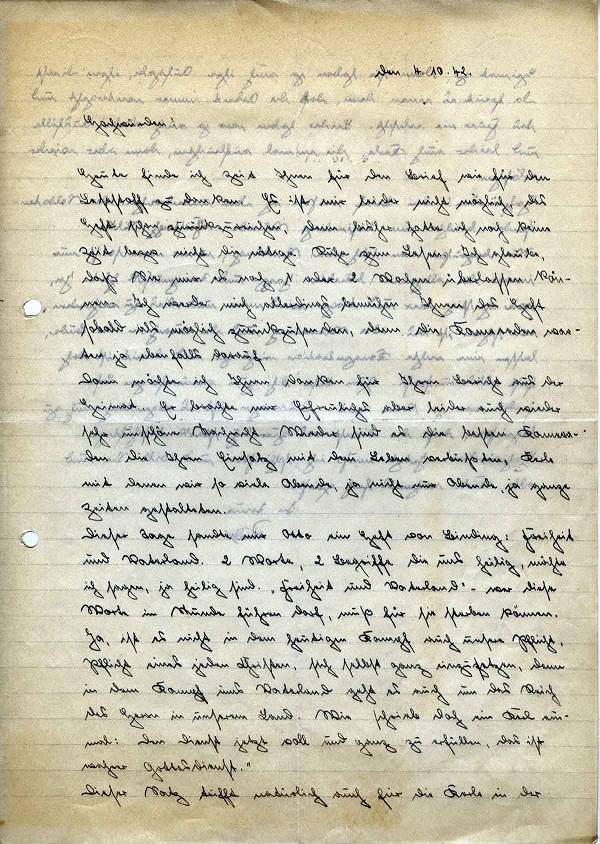 den 4.10.42.
Hochwürden!
Heute finde ich Zeit Ihnen für den Brief wie für den
Lesestoff zu danken. Es ist mir leider nicht möglich, das
Heft schon zurückzureichen, denn bisher hatte ich noch keine
Zeit bezw. nicht die nötige Ruhe zum Lesen. Ich glaube,
daß Sie mir es noch 1 oder 2 Wochen überlassen kön-
nen. Ich werde mich allerdings bemühen Ihnen das Heft
sobald als möglich zurückzusenden, denn die Kameraden war-
ten ja ebenfalls darauf.
Dann möchte ich Ihnen danken für Ihren Bericht aus der
Heimat. Er brachte mir Erfreuliches aber leider auch wieder
sehr unschöne Nachricht. Wieder sind es die besten Kamera-
den die ihren Einsatz mit dem Leben verbürgten, Kerle
mit denen wir so viele Abende, ja nicht nur Abende, ja ganze
Zeiten gestalteten.
Dieser Tage sandte mir Otto ein Heft von Binding: Freiheit
und Vaterland. 2 Worte, 2 Begriffe die uns heilig, möchte
ich sagen, ja heilig sind. „Freiheit und Vaterland" - wer diese
Worte im Munde führen darf, muß für sie sterben können.
Ja, ist es nicht in dem heutigen Kampf auch unsere Pflicht,
Pflicht eines jeden Christen, sich selbst ganz einzusetzen, denn
in dem Kampf ums Vaterland geht es auch um das Reich
des Herrn in unserem Land. Wie schrieb doch ein Kerl ein-
mal: „Den Dienst jetzt voll und ganz zu erfüllen, das ist
wahrer Gottesdienst."
Dieser Satz trifft natürlich auch für die Kerle in der